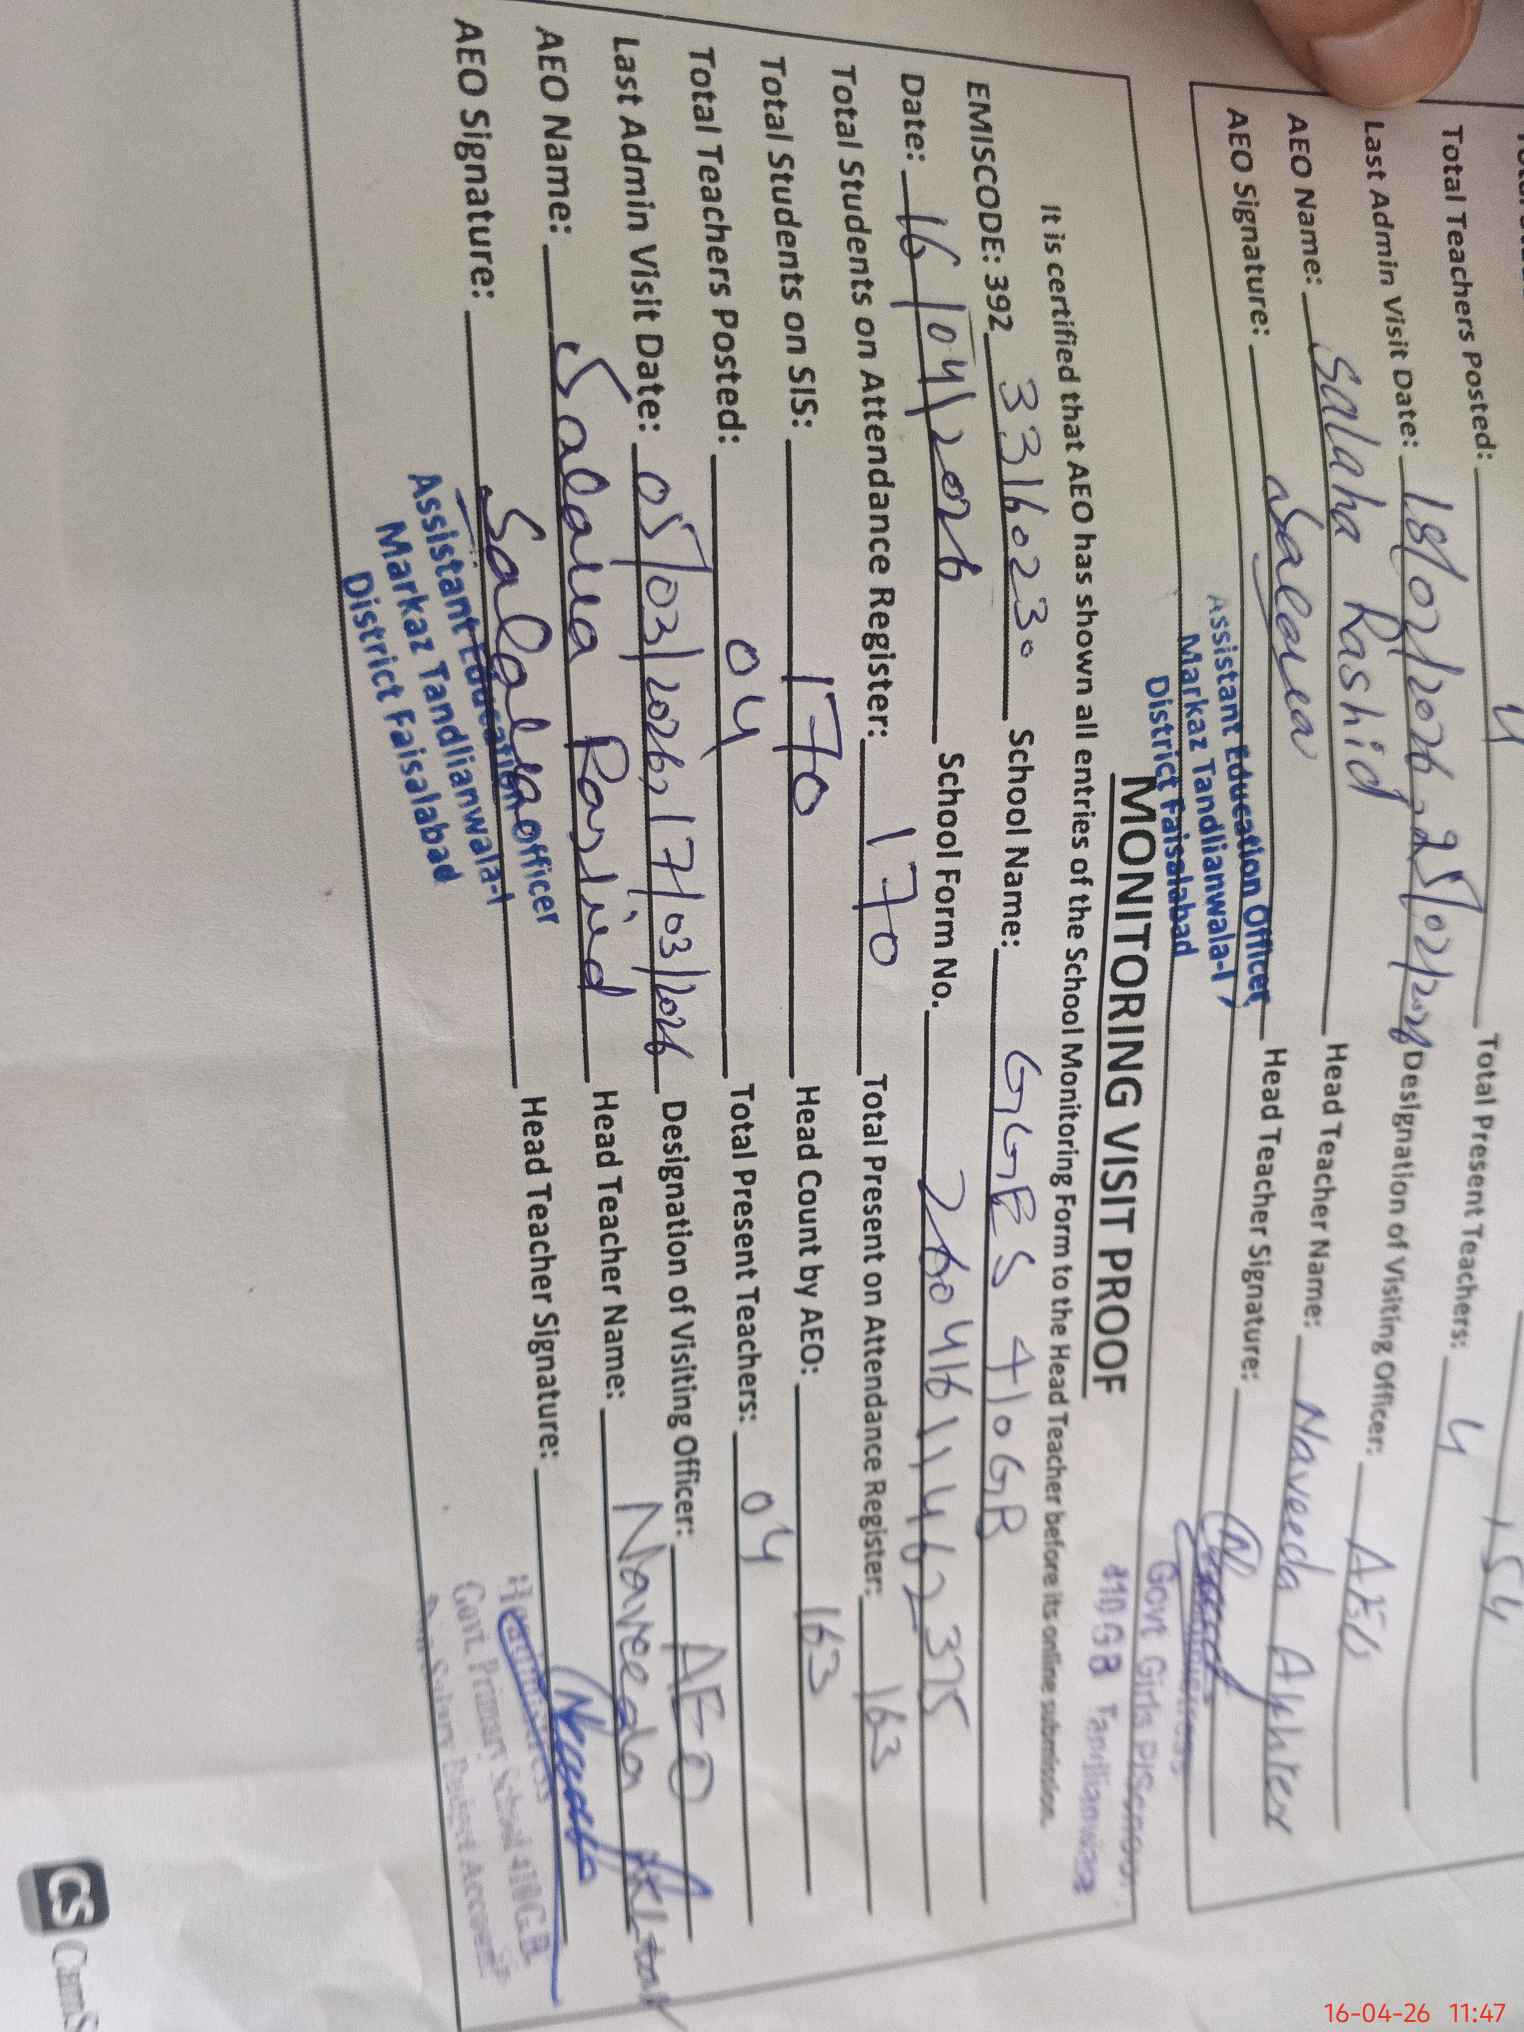 Total Teachers Posted: 4 Total Present Teachers: 4
Last Admin Visit Date: 18/02/2026, 25/02/2026 Designation of Visiting Officer: AEO
AEO Name: Salaha Rashid Head Teacher Name: Naveeda Akhter
AEO Signature: Head Teacher Signature:
Assistant Education Officer
Markaz Tandlianwala-I
District Faisalabad
Govt Girls P/School
410 GB Tandlianwala
MONITORING VISIT PROOF
It is certified that AEO has shown all entries of the School Monitoring Form to the Head Teacher before its online submission.
EMISCODE: 392 33160230 School Name: GGES 410GB
Date: 16/04/2026 School Form No. 26041611462375
Total Students on Attendance Register: 170 Total Present on Attendance Register: 163
Total Students on SIS: 170 Head Count by AEO: 163
Total Teachers Posted: 04 Total Present Teachers: 04
Last Admin Visit Date: 05/03/2026, 17/03/2026 Designation of Visiting Officer: AEO
AEO Name: Salaha Rashid Head Teacher Name: Naveeda Akhtar
AEO Signature: Salaha Head Teacher Signature: Naveeda
Assistant Education Officer
Markaz Tandlianwala-I
District Faisalabad
Headmistress
Govt. Primary School 410 G.B.
CS CamS
16-04-26 11:47